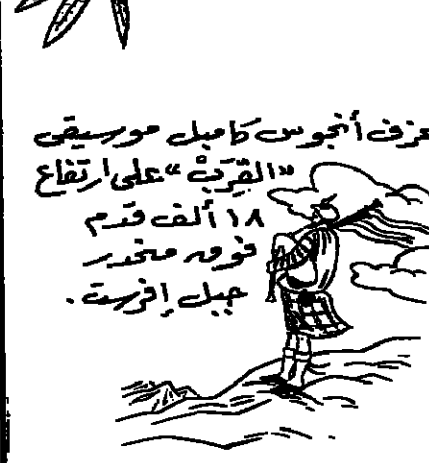 عزف أنجوس كامبل موسيقى
"القِرَبْ" على ارتفاع
١٨ ألف قدم
فوق منحدر
جبل إفرست.